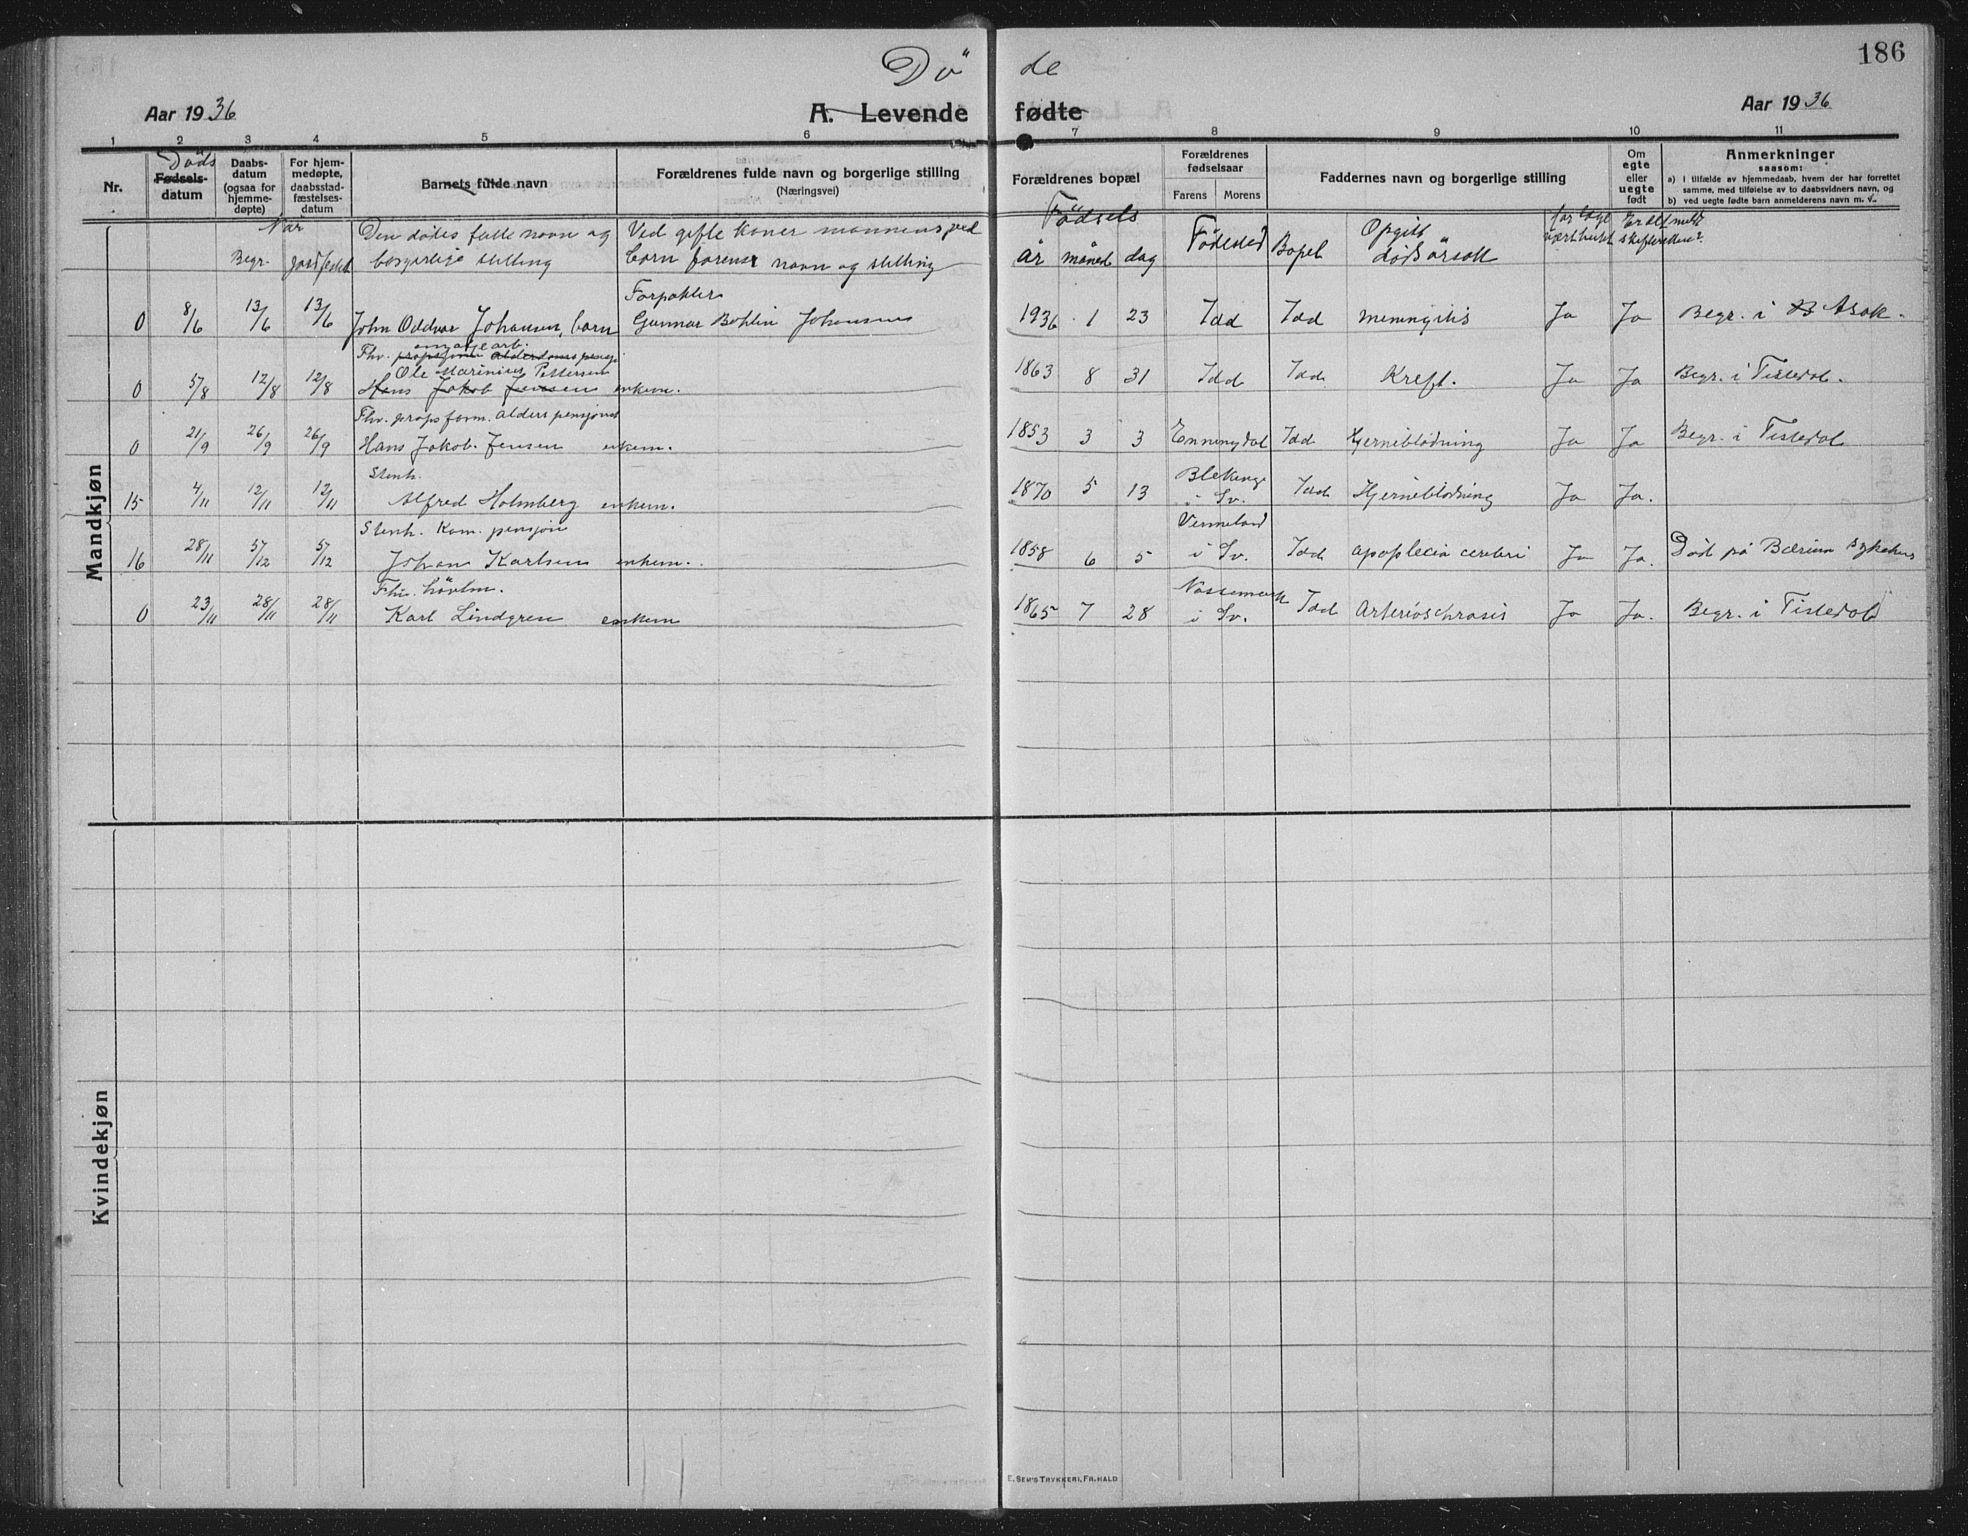 186
Dö de
Aar 1936 A. Levende fødte Aar 1936
1 2 3 4 5 6 7 8 9 10 11
Nr.
Döds
Fødsels-
datum
Daabs-
datum
(ogsaa for
hjemme-
døpte)
For hjem-
medøpte,
daabsstad-
fæstelses-
datum
Barnets fulde navn
Forældrenes fulde navn og borgerlige stilling
(Næringsvei)
Forældrenes bopæl
Forældrenes
fødselsaar
Farens Morens
Faddernes navn og borgerlige stilling
Om
egte
eller
uegte
født
Anmerkninger
saasom:
a) I tilfælde av hjemmedaab, hvem der har forrettet
samme, med tilføielse av to daabsvidners navn, og
b) ved uegte fødte barn anmelderens navn m. v.
Når
Begr. jordfestet
Den dödes fulle navn og
borgerlige stilling
Ved gifte koner mannens, ved
barn farens navn og stilling
Födsels
år måned dag
Födested
Bopel
Opgitt
dödsårsak
Mandkjøn
0 8/6 13/6 13/6 John Oddvar Johansen, barn
Forpakter
Gunnar Bohlin Johansens
1936 1 23 Idd Idd meningitis Ja Ja Begr. i Asak.
Fhv.
Ole Marinius Pettersen
0 5/8 12/8 12/8 Hans Jakob Jensen enkem.
1863 8 31 Idd Idd Kreft. Ja Ja Begr. i Tistedal.
Fhv. props form. alders pensjonist
0 21/9 26/9 26/9 Hans Jakob Jensen enkem.
1853 3 3 Enningdal Idd Hjerneblödning Ja Ja Begr. i Tistedal
Stenh.
15 4/11 12/11 12/11 Alfred Holmberg enkem.
1870 5 13 Blekinge
i Sv. Idd Hjerneblödning Ja Ja.
Stenh. Kom. pensjon
16 28/11 5/12 5/12 Johan Karlsen enkem.
1858 6 5 Vermeland
i Sv. Idd apoplecia cerebri Ja Ja. Död på Bærum sykehus
Fhv.
0 23/11 28/11 28/11 Karl Lindgren enkem
1865 7 28 Nössemark
i Sv. Idd Ja Ja. Begr. i Tistedal
Kvindekjøn
E. Sem's Trykkeri, Fr.hald